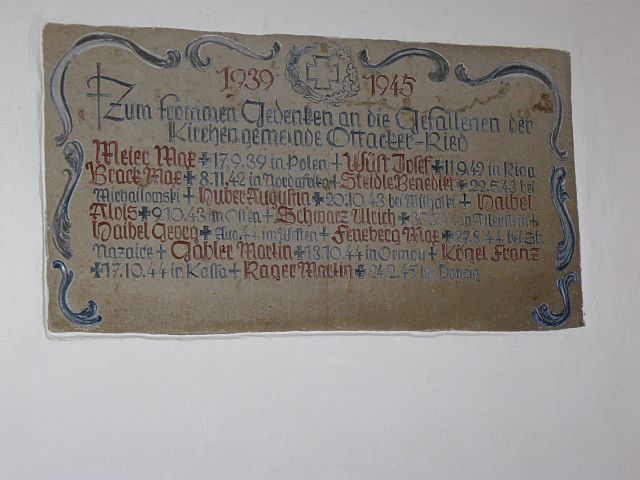 1939 1945
Zum frommen Gedenken an die Gefallenen der
Kirchengemeinde Ottacker-Ried
Meier Max ✠ 17.9.39 in Polen + Wüst Josef ✠ 11.9.42 in Riga
Brack Max ✠ 8.11.42 in Nordafrika + Steidle Benedikt ✠ 22.5.43 bei
Michailowski + Huber Augustin ✠ 20.10.43 bei + Haibel
Alois ✠ 9.10.43 im Osten + Schwarz Ulrich ✠ 30.7.44 in +
Haibel Georg ✠ Aug.44 im Westen + Feneberg Max ✠ 27.8.44 bei St.
Nazaire + Gabler Martin ✠ 13.10.44 in + Kögel Franz
✠ 17.10.44 in Kassa + Rager Martin ✠ 24.2.45 bei Danzig